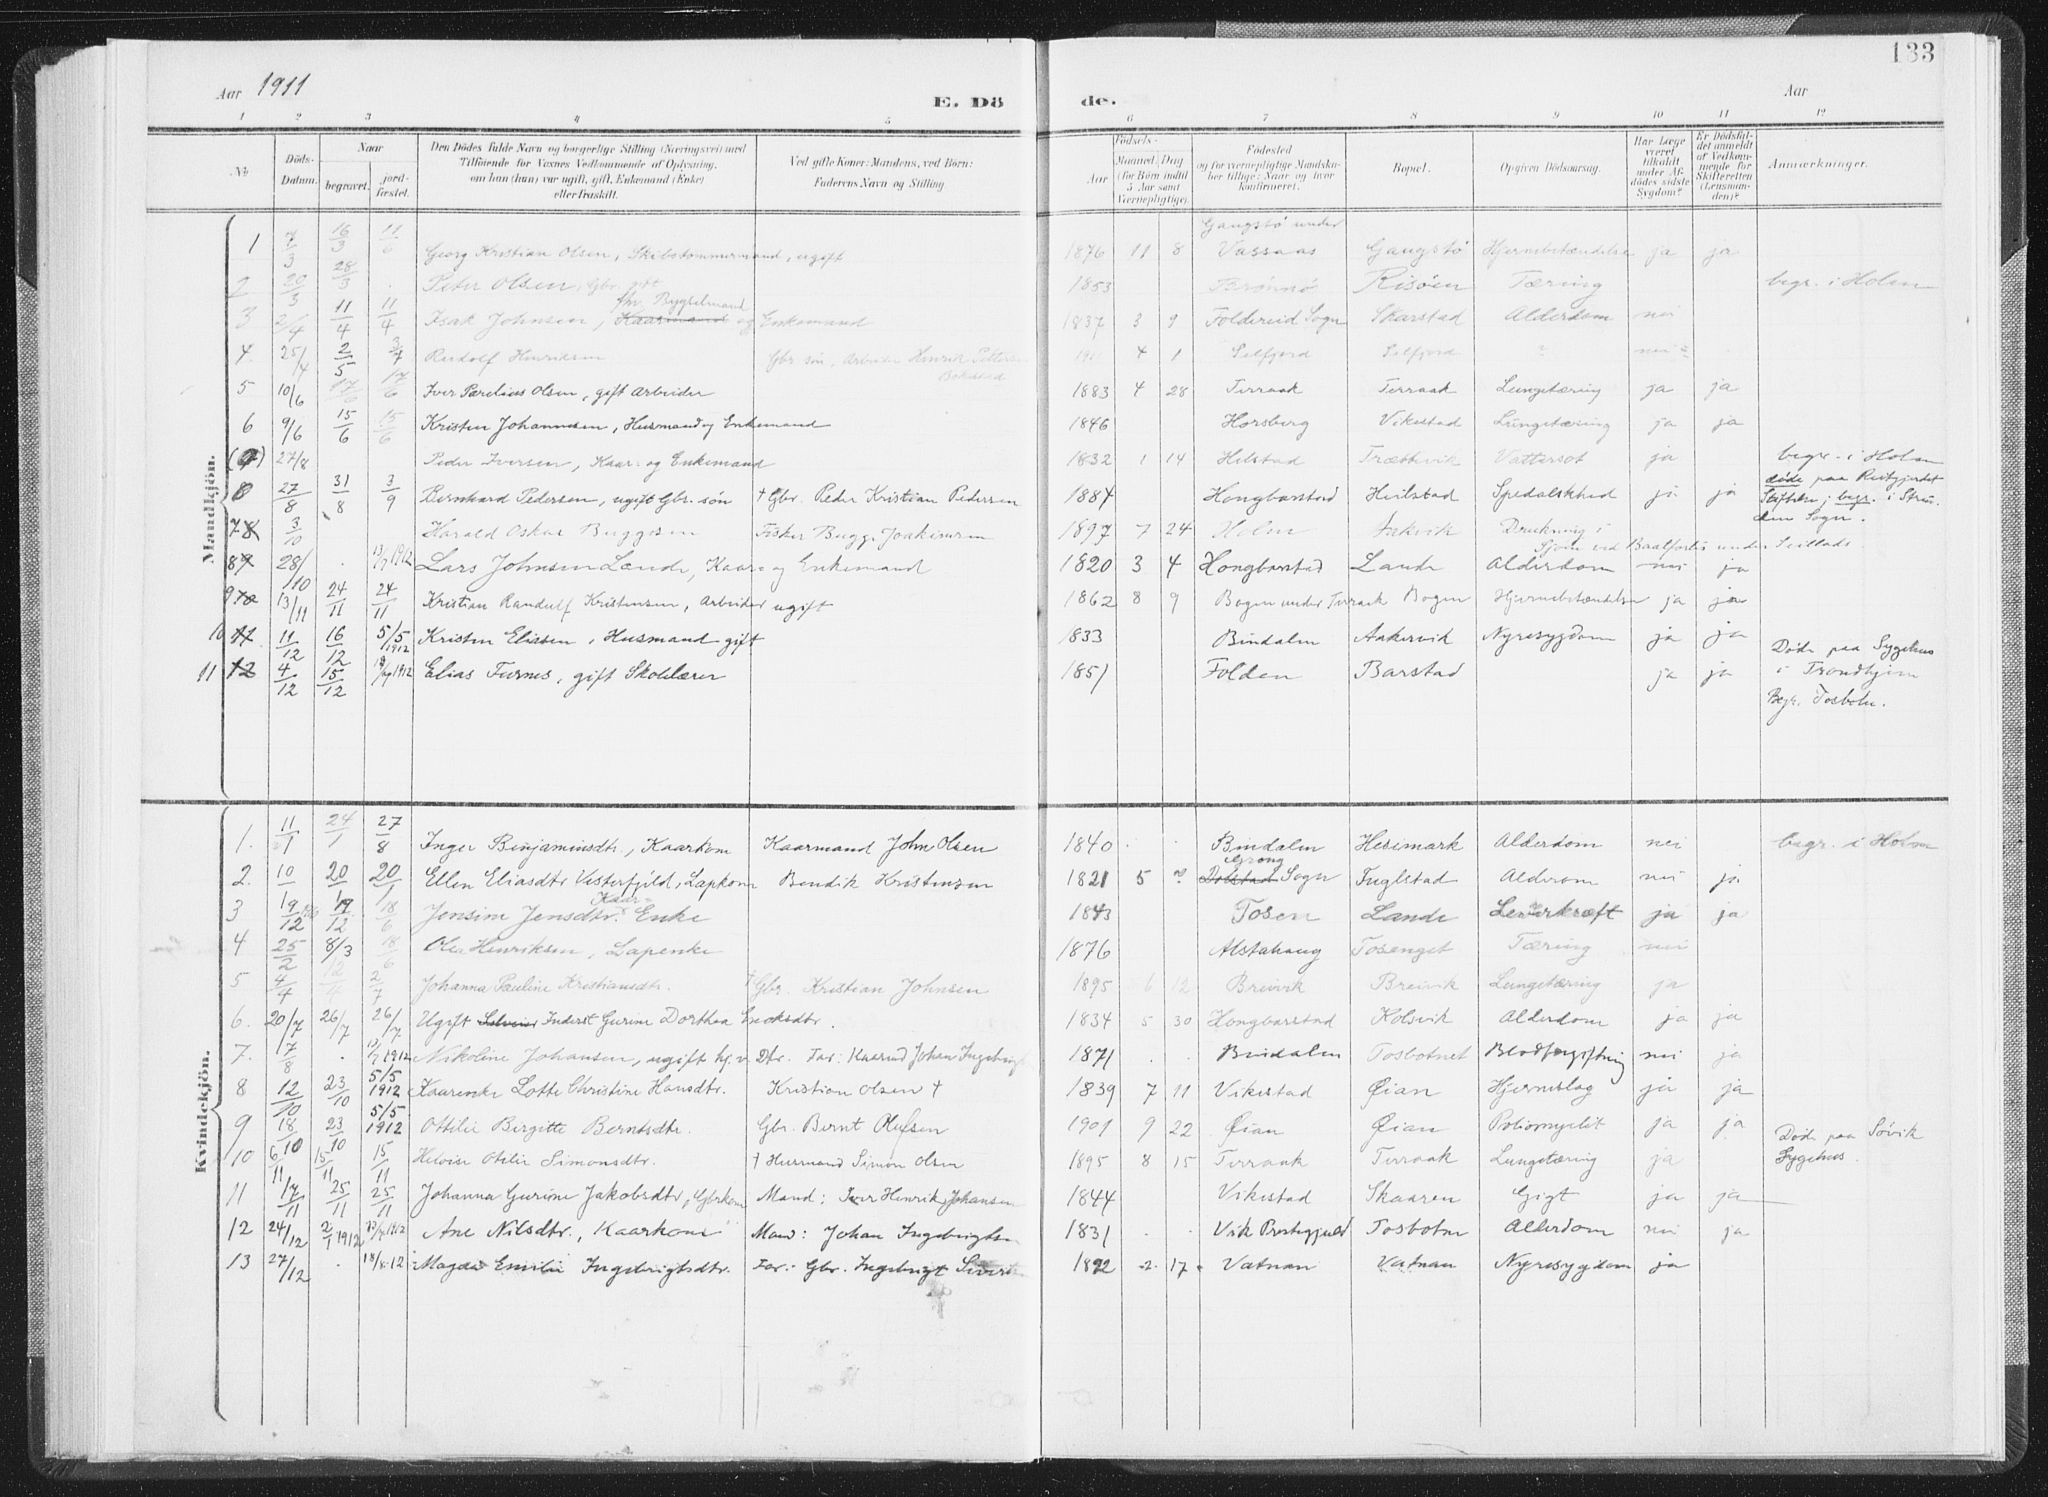 133
Aar 1911
E. Dö de.
Aar
1 2 3 4 5 6 7 8 9 10 11 12
№
Döds-Datum.
Naar begravet. jordfæstet.
Den Dödes fulde Navn og borgerlige Stilling (Næringsvei) med Tilföiende for Voxnes Vedkommende af Oplysning, om han (hun) var ugift, gift, Enkemand (Enke) eller fraskilt.
Ved gifte Koner: Mandens, ved Börn: Faderens Navn og Stilling.
Födsels-
Aar
Maaned. Dag (for Börn indtil 5 Aar samt Værnepligtige).
Födested og for værnepligtige Mandskaber tillige: Naar og hvor konfirmeret.
Bopæl.
Opgiven Dödsaarsag.
Har Læge været tilkaldt under Afdödes sidste Sygdom?
Er Dödsfaldet anmeldt af Vedkommende for Skifteretten (Lensmanden)?
Anmærkninger.
Mandkjön.
1 7/3 16/3 11/6 Georg Kristian Olsen, Skibstømmermand, ugift 1876 11 8 Gangstø under Vassaas Gangstø Hjernebetændelse ja ja
2 20/3 28/3 . Peter Olsen, Gbr. gift 1853 Brønnø Risøen Tæring begr. i Holm
3 2/4 11/4 11/4 Isak Johnsen, Kaarmand fhv. Bygselmand og Enkemand 1837 3 9 Foldereid Sogn Skarstad Alderdom nei
4. 25/4 2/5 3/7 Rudolf Henriksen Gbr. søn, Arbeider Henrik Pettersen Bokestad 1911 4 1 Selfjord Selfjord ? nei
5 10/6 17/6 17/6 Iver Parelius Olsen, gift Arbeider 1883 4 28 Terraak Terraak Lungetæring ja ja
6 9/6 15/6 15/6 Kristen Johannesen, Husmand og Enkemand 1846 Horsberg Vikestad Lungetæring ja ja
(7) 27/8 Peder Iversen, Kaar- og Enkemand 1832 1 14 Helstad Trættevik Vattersot ja begr. i Holm
8 27/8 31/8 3/9 Bernhard Pedersen, ugift Gbr. søn † Gbr. Peder Kristian Pedersen 1884 Hongbarstad Heilstad Spedalskhed ja ja døde paa Reitgjerdet Stiftelse; begr. i Strinden Sogn.
7 8 3/10 Harald Oskar Buggesen Fisker Bugge Joakimsen 1897 7 24 Holm Aakvik Drukning i Sjøen ved
8 9 28/10 . 13/7 1912 Lars Johnsen Lande, Kaar- og Enkemand 1820 3 4 Hongbarstad Lande Alderdom nei ja
9 10 13/11 24/11 24/11 Kristian Randulf Kristensen, Arbeider ugift 1862 8 9 Bogen under Terraak Bogen Hjernebetændelse ja ja
10 11 11/12 16/12 5/5 1912 Kristen Eliasen, Husmand gift 1833 Bindalen Aakervik Nyresygdom ja ja
11 12 4/12 15/12 1912 Elias Furnes, gift Skolelærer 1851 Folden Barstad ja ja Døde paa Sygehus i Trondhjem Begr. Tosbotn.
Kvindekjön.
1. 11/1 24/1 27/8 Inger Benjaminsdtr., Kaarkone Kaarmand John Olsen 1840 . . Bindalen Hesimark Alderdom nei begr. i Holm
2. 10/1 20/1 20/1 Ellen Eliasdtr Vesterfjeld, Lapkone Bendik Kristensen 1821 5 ? Dolstad Grong Sogn Fuglstad Alderom nei ja
3 19/12 19/12 18/6 Jensine Jensdtr. Kaar-Enke 1843 Tosen Lande Leverkræft ja ja
4 25/2 8/3 18/6 Olea Henriksen, Lapenke 1876 Alstahaug Tosenget Tæring nei
5 4/4 12/4 2/7 Johanna Pauline Kristiansdtr. † Gbr. Kristian Johnsen 1895 6 12 Breivik Breivik Lungetæring ja
6. 20/7 26/7 26/7 Ugift Inderst Gurine Dorthea Enoksdtr. 1834 5 30 Hongbarstad Kolsvik Alderdom ja ja
7. 17/8 . 13/7 1912 Nikoline Johansen, ugift hj. v. Dtr. Far: Kaarmd Johan Ingebrigts 1871 . . Bindalen Tosbotnet Blodforgiftning nei ja
8 12/10 23/10 5/5 1912 Kaarenke Lotte Christine Hansdtr. Kristian Olsen † 1839 7 11 Vikestad Øian Hjerneslag ja ja
9 18/10 23/10 5/5 1912 Ottilie Birgitte Berntsdtr. Gbr. Bernt Olufsen 1901 9 22 Øian Øian Poliomyelit ja ja
10 6/11 15/11 15/11 Heloise Otilie Simonsdtr. † Husmand Simon Olsen 1895 8 15 Terraak Terraak Lungetæring ja Døde paa Søvik Sygehus.
11 17/11 25/11 25/11 Johanna Gurine Jakobsdtr, Gbrkone Mand: Iver Henrik Johansen 1844 Vikestad Skaaren Gigt ja ja
12 24/12 2/1 1912 13/7 1912 Ane Nilsdtr., Kaarkone Mand: Johan Ingebrigtsen 1831 . Vik Prestegjeld Tosbotn Alderdom nei ja
13 27/12 . 18/8 12 Magda Emilie Ingebrigtsdtr. Far: Gbr. Ingebrigt Sivertsen 1892 2 17 Vatnan Vatnan Nyresygdom ja